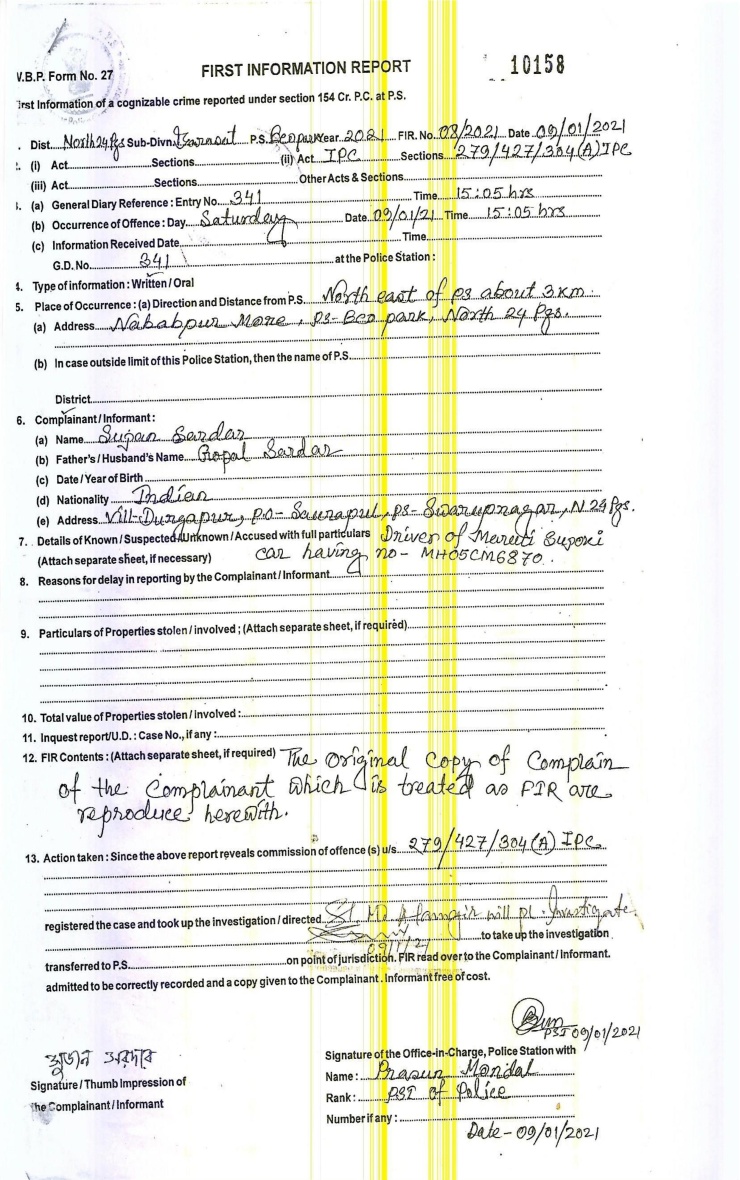 W.B.P. Form No. 27
FIRST INFORMATION REPORT
10158
First Information of a cognizable crime reported under section 154 Cr. P.C. at P.S.
Dist. North 24 Pgs Sub-Divn. Barasat P.S. Eco park Year. 2021 FIR. No. 08/2021 Date 09/01/2021
2. (i) Act Sections (ii) Act IPC Sections 279/427/304(A) IPC
(iii) Act Sections Other Acts & Sections
(a) General Diary Reference : Entry No. 341 Time 15:05 hrs
(b) Occurrence of Offence : Day Saturday Date 09/01/21 Time 15:05 hrs
(c) Information Received Date Time
G.D. No. 341 at the Police Station :
4. Type of information : Written / Oral
5. Place of Occurrence : (a) Direction and Distance from P.S. North east of ps about 3 km.
(a) Address Nababpur More, PS- Eco park, North 24 Pgs.
(b) In case outside limit of this Police Station, then the name of P.S.
District
6. Complainant / Informant :
(a) Name Sujan Sardar
(b) Father's / Husband's Name Gopal Sardar
(c) Date / Year of Birth
(d) Nationality Indian
(e) Address Vill- Durgapur, PO- , PS- Swarupnagar, N. 24 Pgs.
7. Details of Known / Suspected / Unknown / Accused with full particulars Driver of Maruti Suzuki
(Attach separate sheet, if necessary) car having no - MH05CM6870.
8. Reasons for delay in reporting by the Complainant / Informant
9. Particulars of Properties stolen / involved ; (Attach separate sheet, if required)
10. Total value of Properties stolen / involved :
11. Inquest report / U.D. : Case No., if any :
12. FIR Contents : (Attach separate sheet, if required) The original copy of Complain
of the Complainant which is treated as FIR are
reproduce herewith.
13. Action taken : Since the above report reveals commission of offence (s) u/s. 279/427/304(A) IPC
registered the case and took up the investigation / directed will pl. Investigate.
09/1/21 to take up the investigation
transferred to P.S. on point of jurisdiction. FIR read over to the Complainant / Informant.
admitted to be correctly recorded and a copy given to the Complainant. Informant free of cost.
PSI 09/01/2021
সুজন সরদার
Signature / Thumb Impression of
the Complainant / Informant
Signature of the Office-in-Charge, Police Station with
Name : Prasun Mondal
Rank : PSI of Police
Number if any :
Date - 09/01/2021